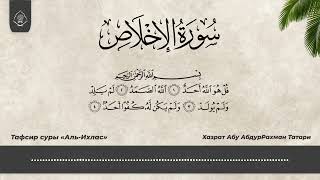 سُورَةُ الإِخْلَاصِ
بِسْمِ اللَّهِ الرَّحْمَٰنِ الرَّحِيمِ
قُلْ هُوَ اللَّهُ أَحَدٌ ١ اللَّهُ الصَّمَدُ ٢ لَمْ يَلِدْ
وَلَمْ يُولَدْ ٣ وَلَمْ يَكُن لَّهُ كُفُوًا أَحَدٌ ٤
Тафсир суры «Аль-Ихлас»
Хазрат Абу АбдурРахман Татари